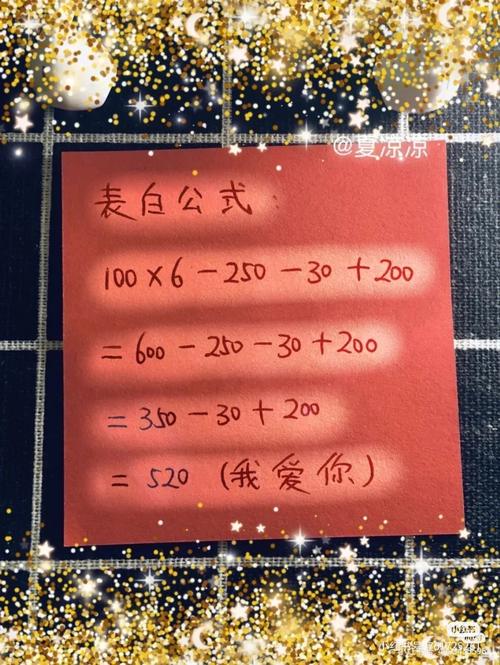 @夏凉凉
表白公式:
100×6-250-30+200
=600-250-30+200
=350-30+200
=520 (我爱你)
小红书